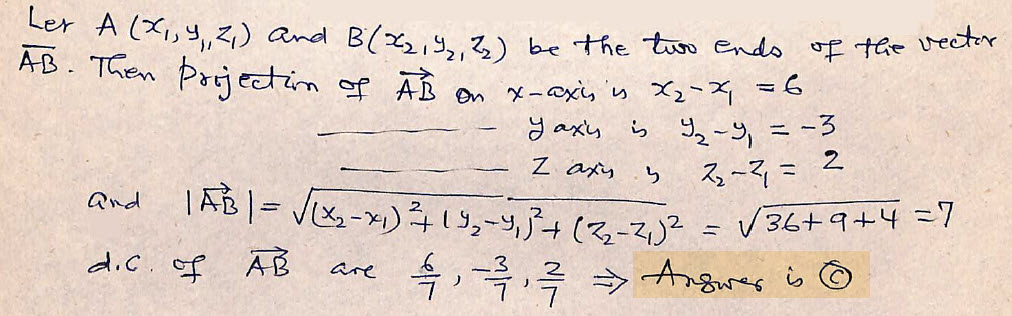 Let A (x₁, y₁, z₁) and B(x₂, y₂, z₂) be the two ends of the vector
AB. Then Projection of AB on x-axis is x₂-x₁ = 6
——— y axis is y₂-y₁ = -3
——— z axis is z₂-z₁ = 2
and |AB| = √(x₂-x₁)²+(y₂-y₁)²+(z₂-z₁)² = √36+9+4 = 7
d.c. of AB are 6/7, -3/7, 2/7 ⇒ Answer is ©